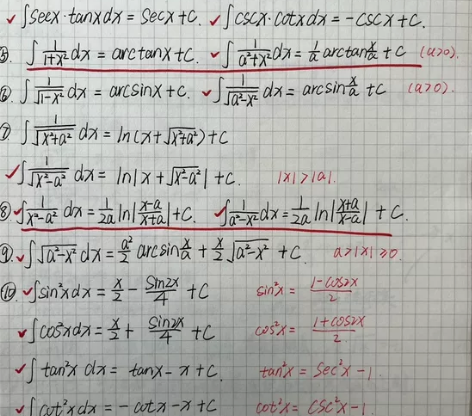 ✓∫secx·tanxdx = secx+C. ✓∫cscx·cotxdx = -cscx+C.
⑤. ∫ 1/(1+x²) dx = arctanx+C. ✓∫ 1/(a²+x²) dx = 1/a arctan x/a + C (a>0).
⑥. ∫ 1/√(1-x²) dx = arcsinx+C. ✓∫ 1/√(a²-x²) dx = arcsin x/a + C (a>0).
⑦ ∫ 1/√(x²+a²) dx = ln(x+√(x²+a²))+C
✓∫ 1/√(x²-a²) dx = ln|x+√(x²-a²)|+C. |x|>|a|.
⑧ ✓∫ 1/(x²-a²) dx = 1/2a ln|(x-a)/(x+a)|+C. ✓∫ 1/(a²-x²) dx = 1/2a ln|(x+a)/(x-a)| + C.
⑨. ✓∫√(a²-x²) dx = a²/2 arcsin x/a + x/2 √(a²-x²) + C. a>|x|≥0.
⑩ ✓∫sin²xdx = x/2 - sin2x/4 + C sin²x = (1-cos2x)/2
✓∫cos²xdx = x/2 + sin2x/4 + C cos²x = (1+cos2x)/2
✓∫tan²x dx = tanx-x+C. tan²x = sec²x-1
✓∫cot²xdx = -cotx-x+C. cot²x = csc²x-1